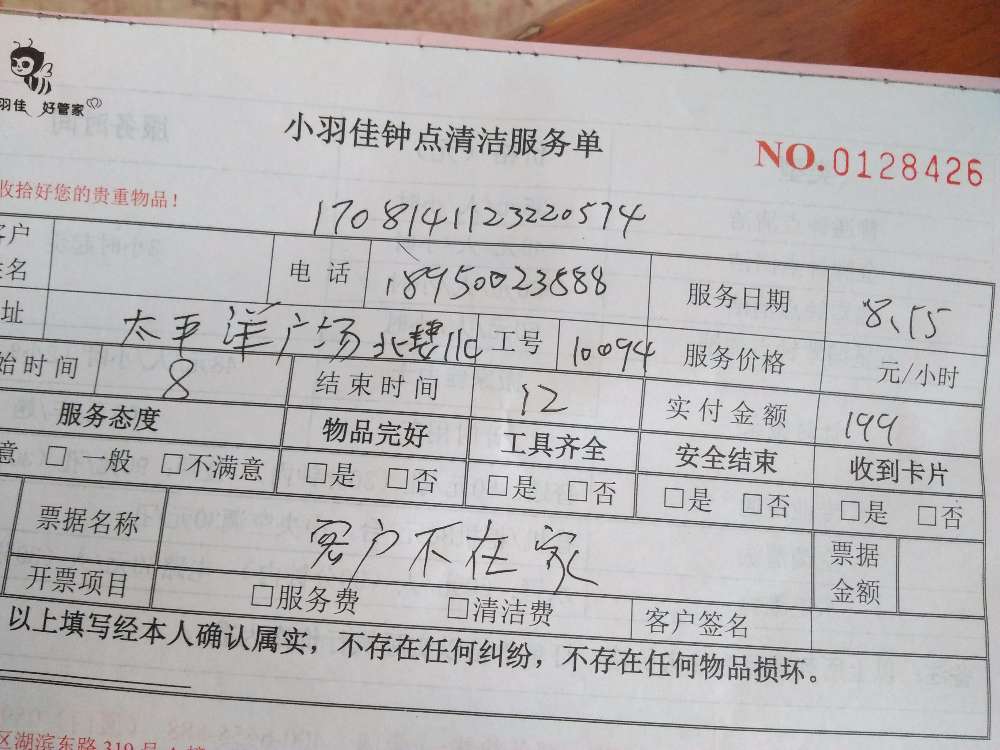 羽佳 好管家
小羽佳钟点清洁服务单
NO.0128426
收拾好您的贵重物品！
1708141123220574
客户姓名 电 话 18950023888 服务日期 8、15
址 太平洋广场北楼11C 工号 10094 服务价格 元/小时
始时间 8 结束时间 12 实付金额 199
服务态度 物品完好 工具齐全 安全结束 收到卡片
意 □一般 □不满意 □是 □否 □是 □否 □是 □否 □是 □否
票据名称 客户不在家 票据金额
开票项目 □服务费 □清洁费 客户签名
以上填写经本人确认属实，不存在任何纠纷，不存在任何物品损坏。
区湖滨东路319号